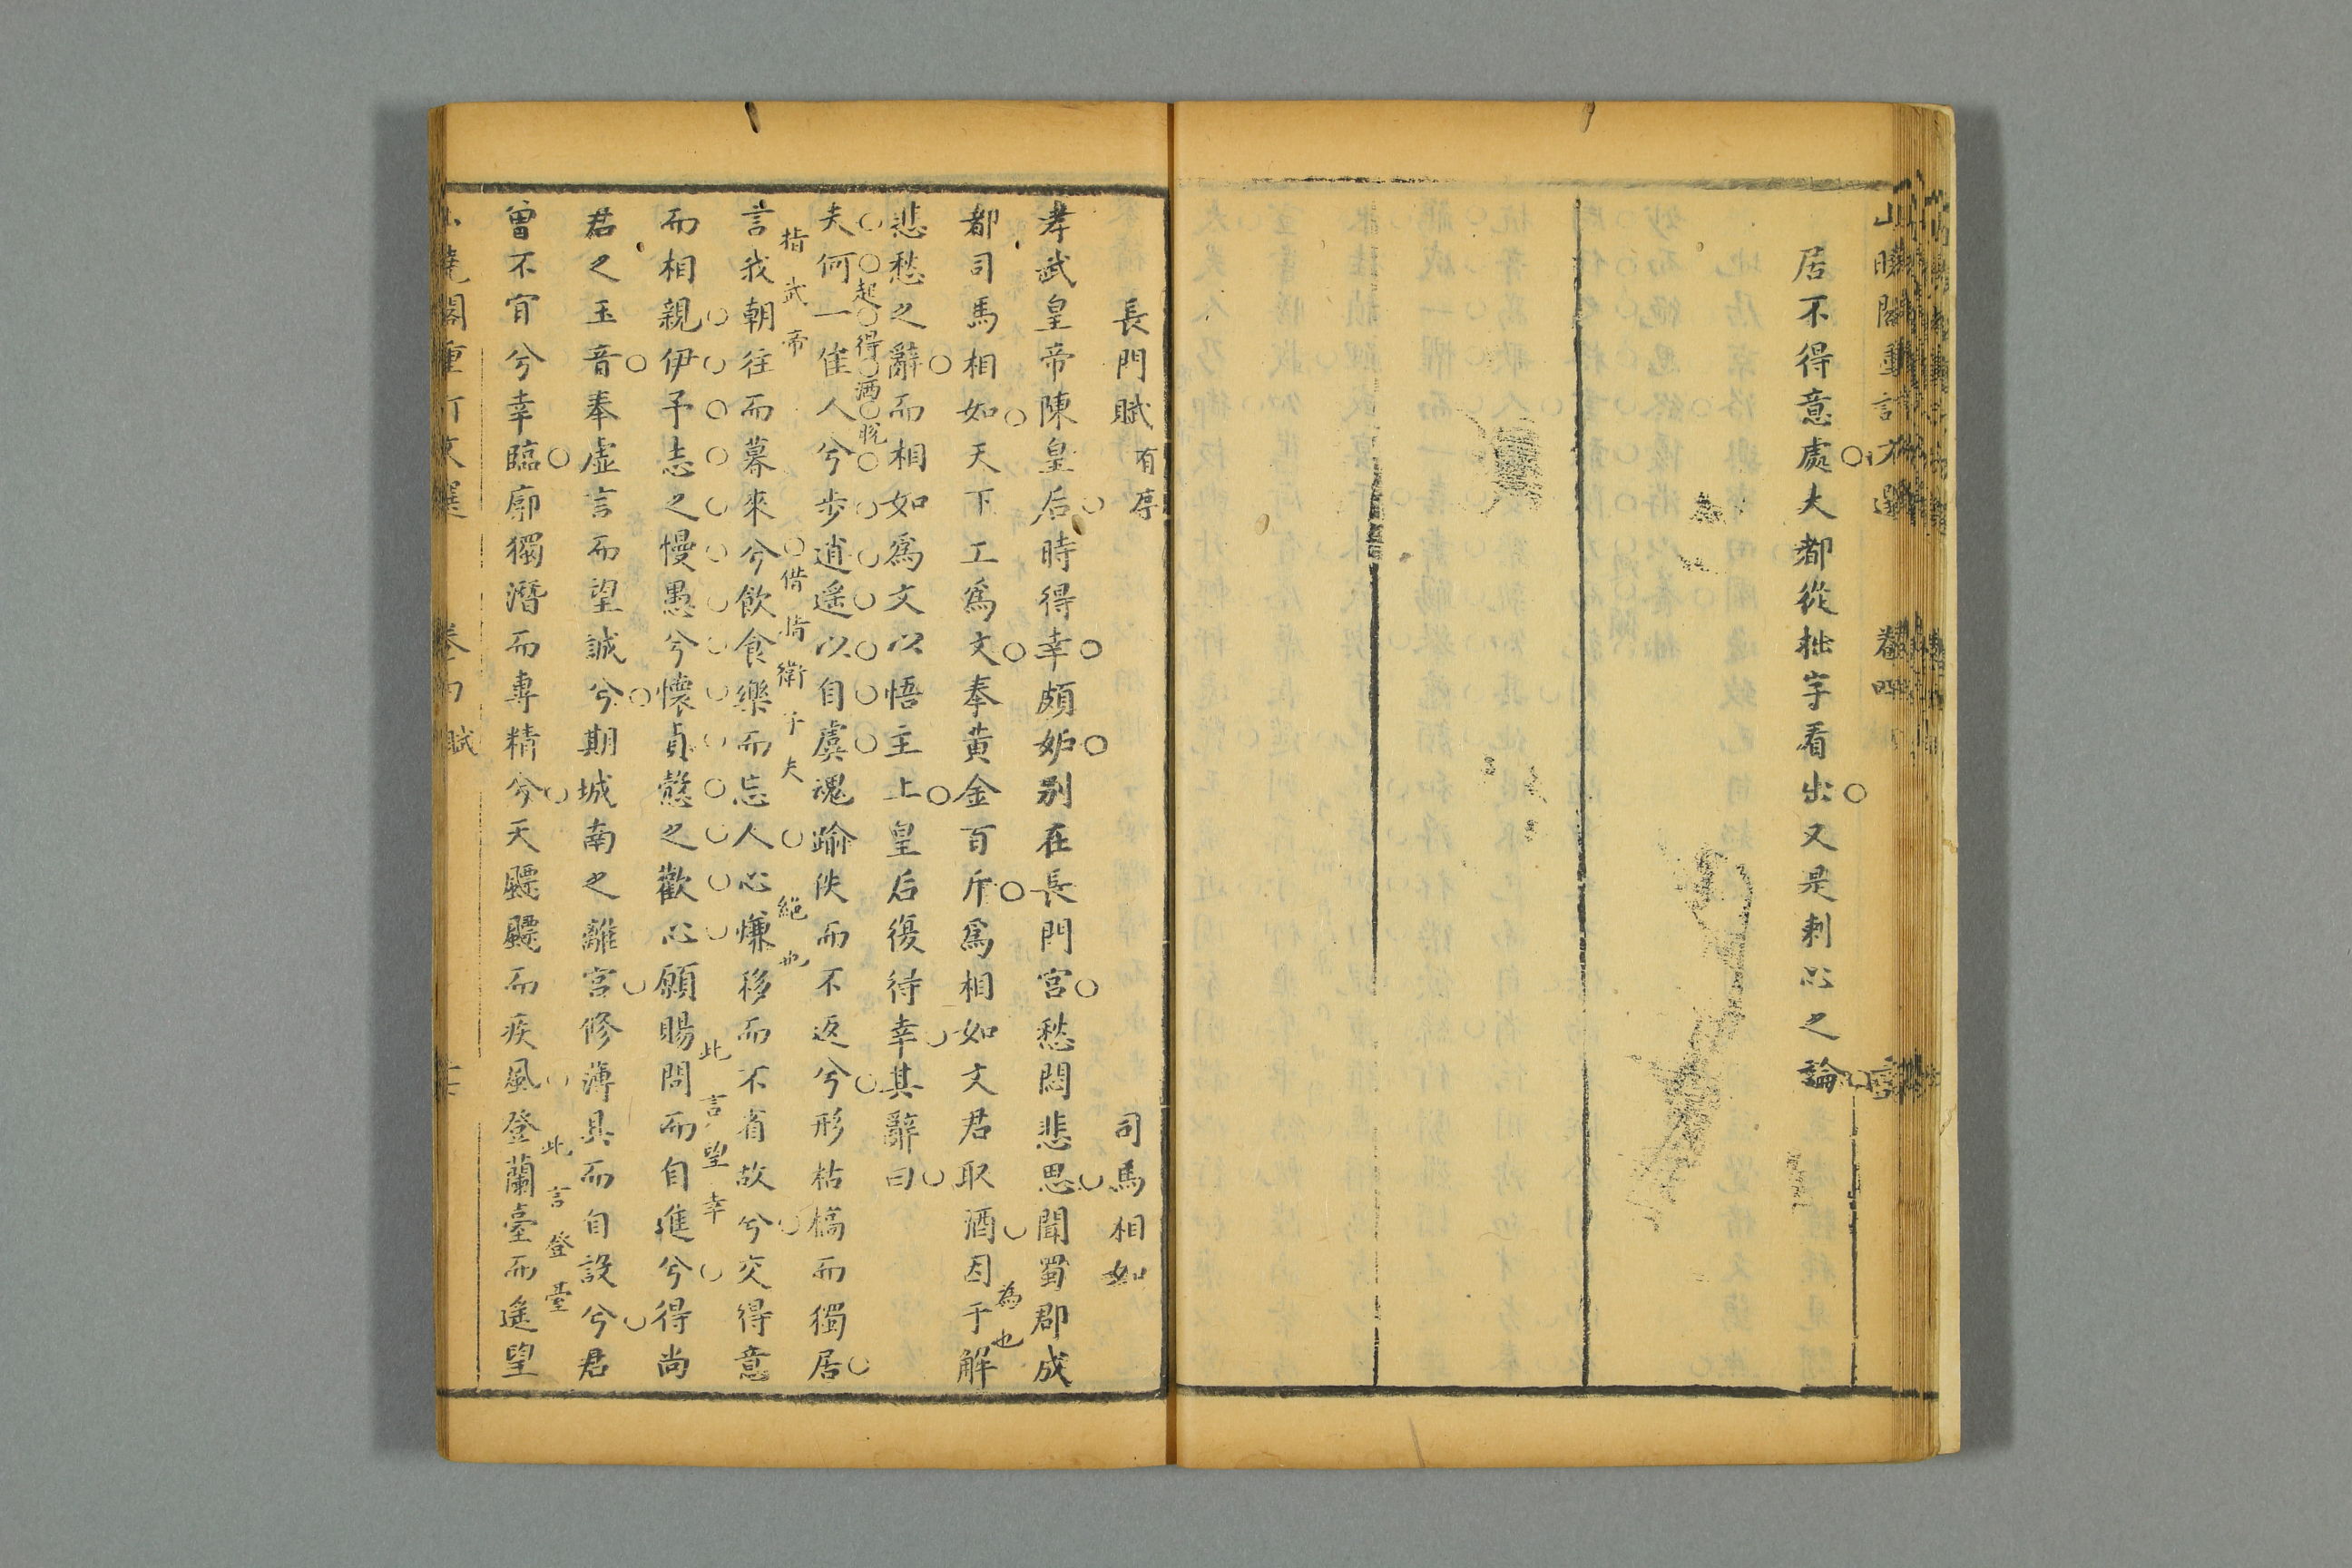 山曉閣重訂文選
居不得意處大都從拙字看出又是刺心之論
長門賦有序
司馬相如
孝武皇帝陳皇后時得幸頗妒别在長門宮愁悶悲思聞蜀郡成
都司馬相如天下工為文奉黄金百斤為相如文君取酒因于解
為也
悲愁之辭而相如為文以悟主上皇后復待幸其辭曰
起得洒脫
夫何一佳人兮步逍遙以自虞魂踰佚而不返兮形枯槁而獨居
指武帝
借指衛子夫
絕也
言我朝往而暮來兮飲食樂而忘人心慊移而不省故兮交得意
而相親伊予志之慢愚兮懷貞慤之歡心願賜問而自進兮得尚
此言望幸
君之玉音奉虛言而望誠兮期城南之離宮修薄具而自設兮君
曾不肎兮幸臨廓獨潛而專精兮天飄飄而疾風登蘭臺而遙望
此言登臺